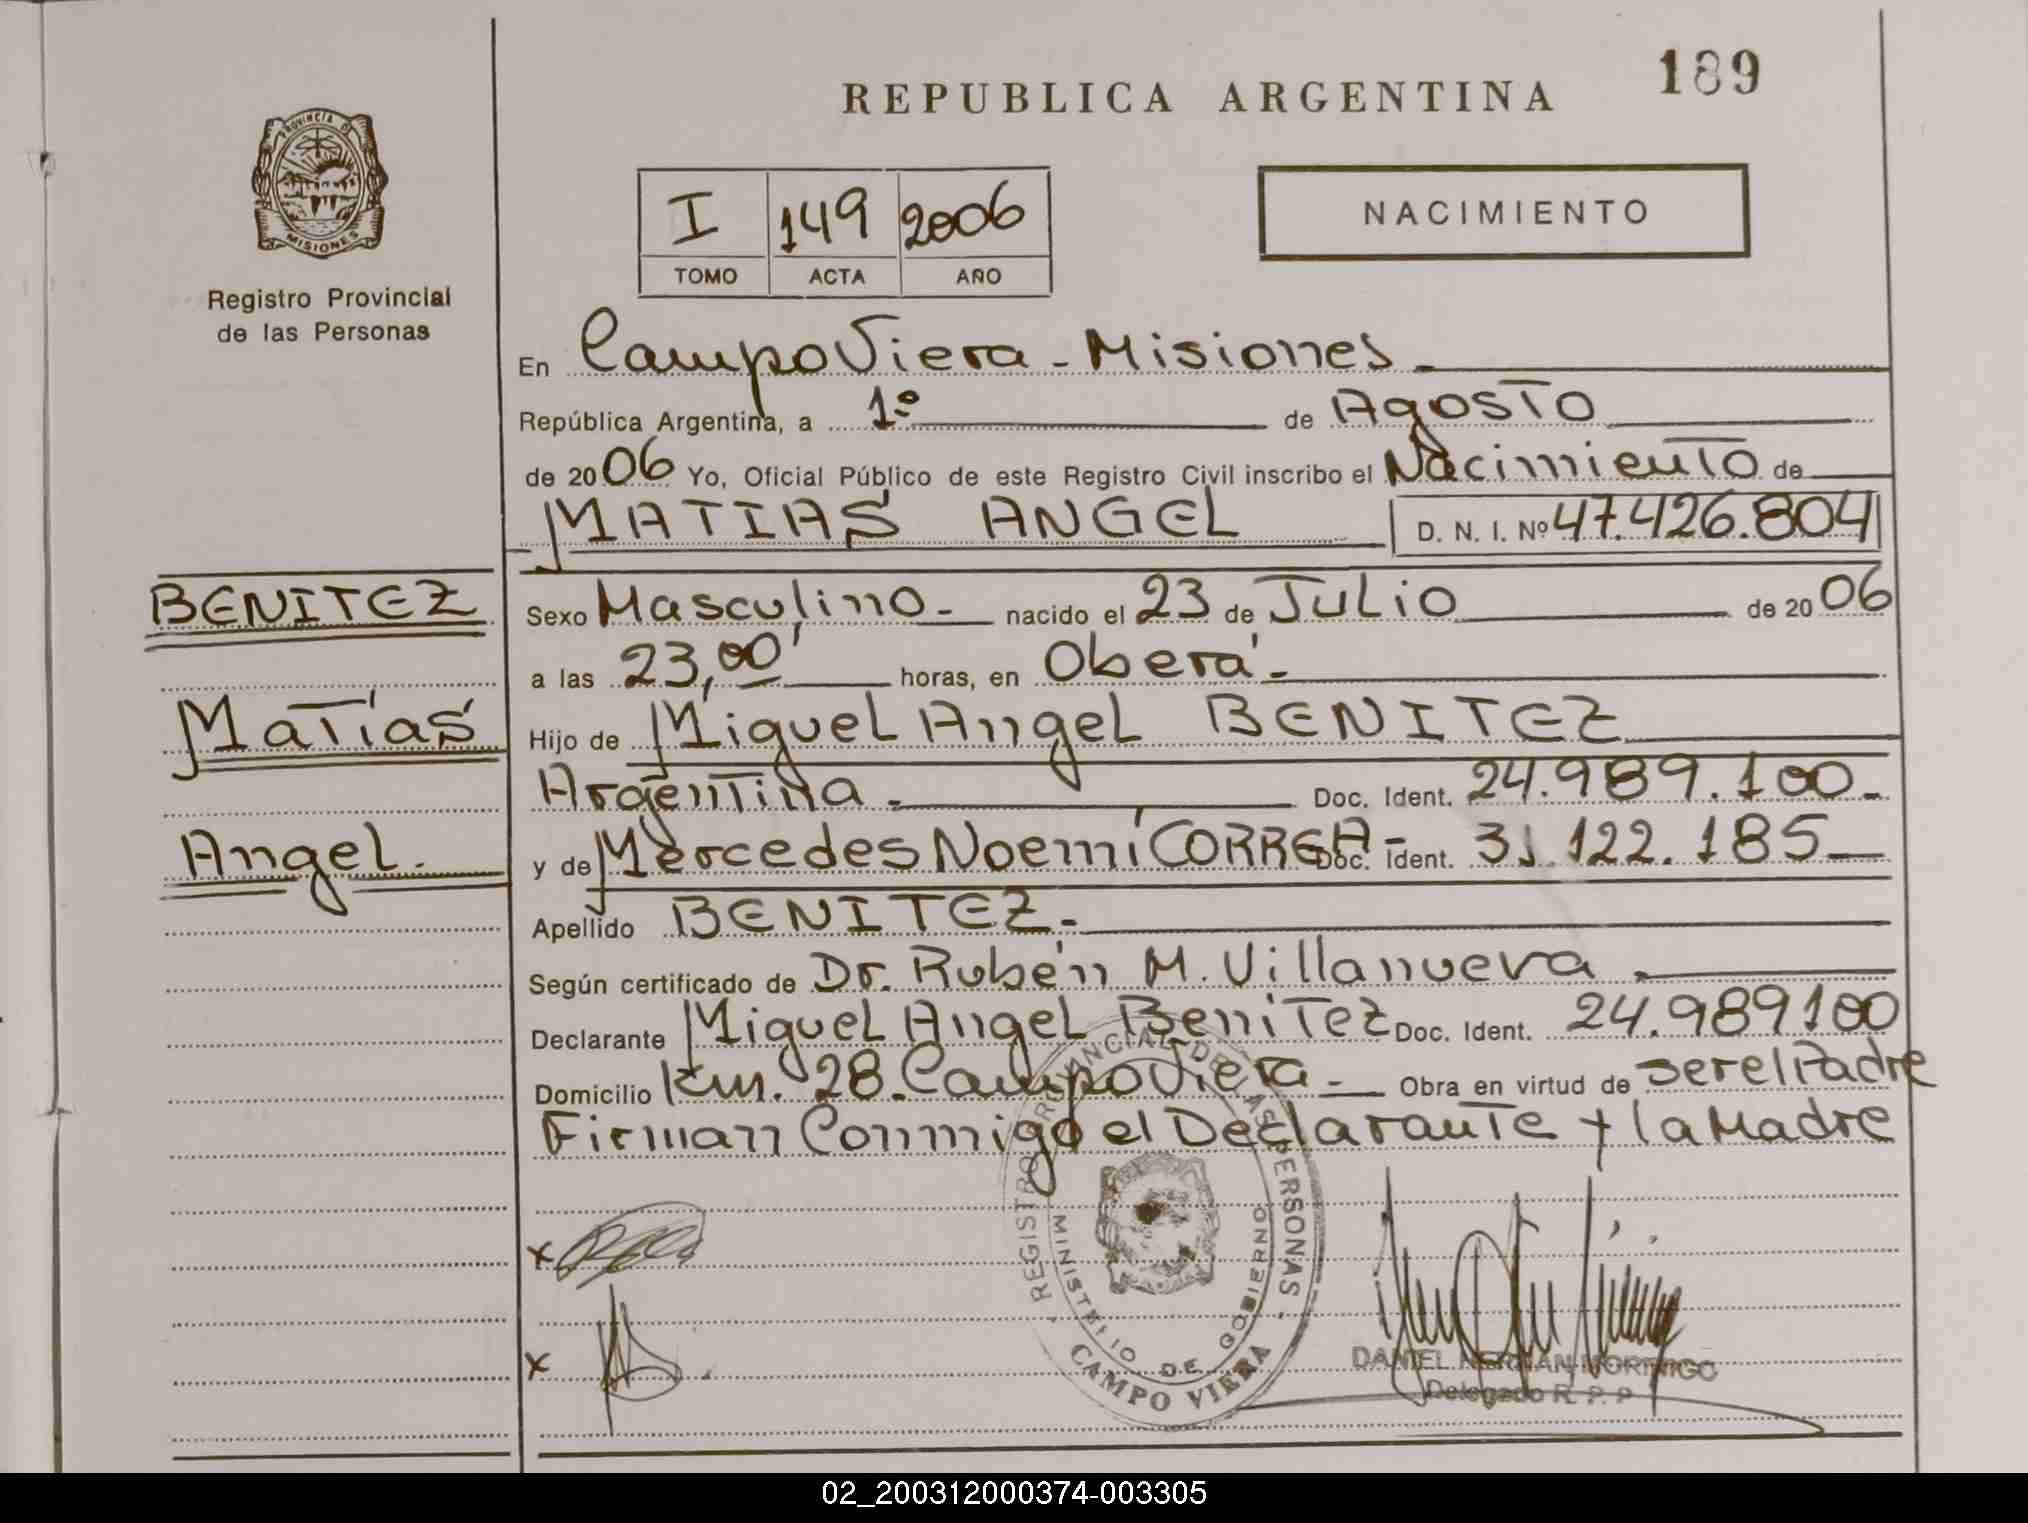 189
REPUBLICA ARGENTINA
PROVINCIA DE
MISIONES
Registro Provincial
de las Personas
I 149 2006
TOMO ACTA AÑO
NACIMIENTO
En Campo Viera - Misiones
República Argentina, a 1º de Agosto
de 2006 Yo, Oficial Público de este Registro Civil inscribo el Nacimiento de
MATIAS ANGEL D. N. I. Nº 47.426.804
BENITEZ
Matías
Angel.
Sexo Masculino - nacido el 23 de Julio de 2006
a las 23,00' horas, en Oberá -
Hijo de Miguel Angel BENITEZ
Argentina - Doc. Ident. 24.989.100 -
y de Mercedes Noemí CORREA - Doc. Ident. 31.122.185
Apellido BENITEZ -
Según certificado de Dr. Rubén M. Villanueva
Declarante Miguel Angel Benitez Doc. Ident. 24.989100
Domicilio Km. 28. Campo Viera - Obra en virtud de ser el Padre
Firman Conmigo el Declarante y la Madre
x
x
REGISTRO PROVINCIAL DE LAS PERSONAS
MINISTERIO DE GOBIERNO
CAMPO VIERA
DANIEL HERNAN MORINIGO
Delegado R. P. P
02_200312000374-003305